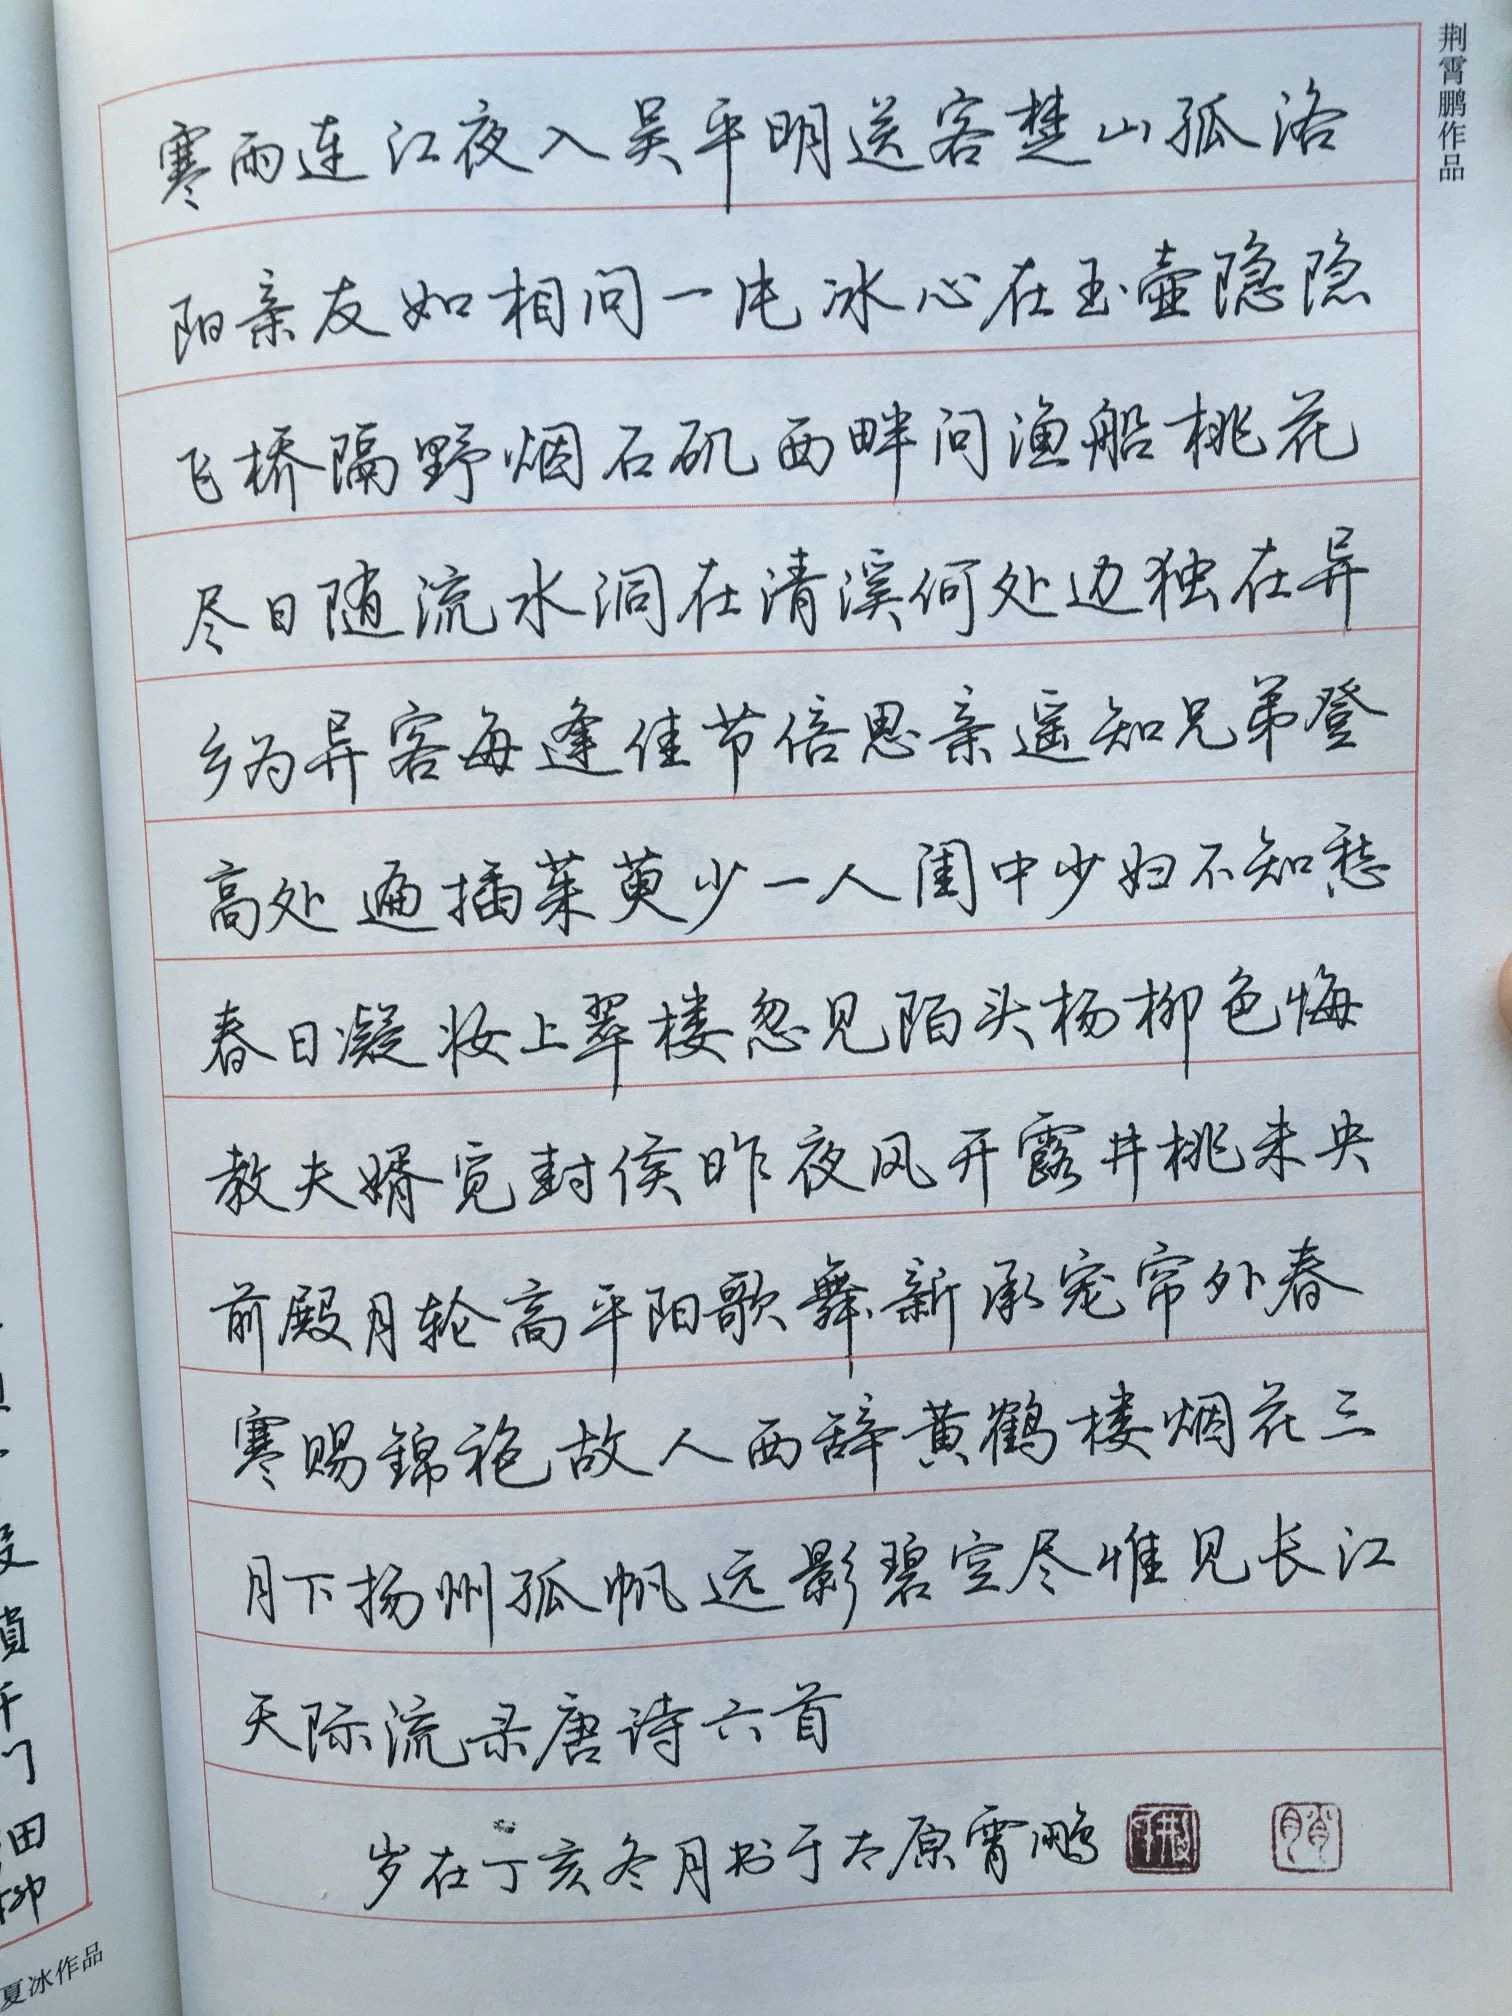 荆霄鹏作品
寒雨连江夜入吴平明送客楚山孤洛
阳亲友如相问一片冰心在玉壶隐隐
飞桥隔野烟石矶西畔问渔船桃花
尽日随流水洞在清溪何处边独在异
乡为异客每逢佳节倍思亲遥知兄弟登
高处遍插茱萸少一人闺中少妇不知愁
春日凝妆上翠楼忽见陌头杨柳色悔
教夫婿觅封侯昨夜风开露井桃未央
前殿月轮高平阳歌舞新承宠帘外春
寒赐锦袍故人西辞黄鹤楼烟花三
月下扬州孤帆远影碧空尽惟见长江
天际流录唐诗六首
岁在丁亥冬月书于太原霄鹏
夏冰作品